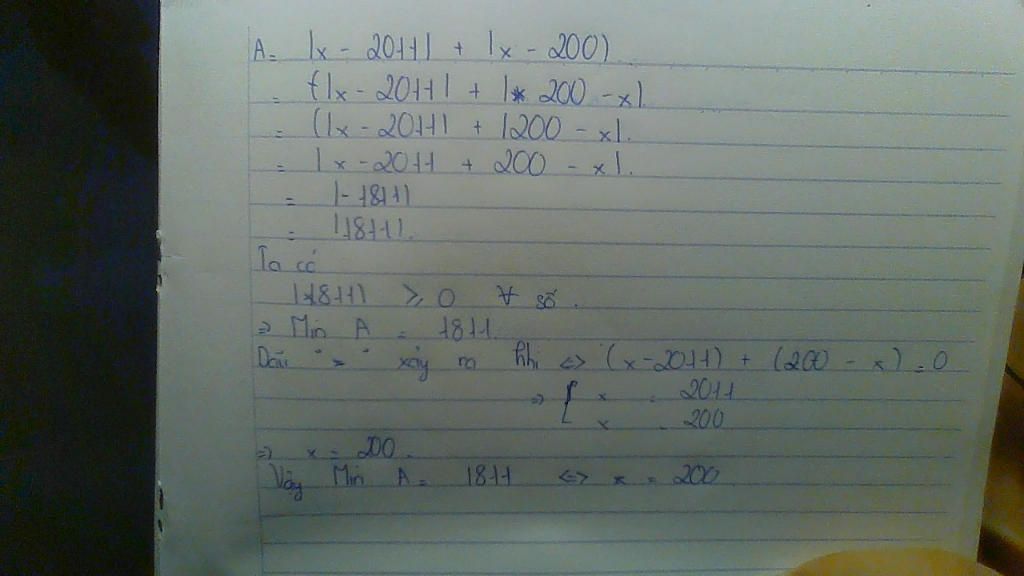 A = |x - 2011| + |x - 200)
= {|x - 2011| + | 200 - x|.
= (|x - 2011| + |200 - x|.
= |x - 2011 + 200 - x|.
= |-1811|
= |1811|.
Ta có
|1811| ≥ 0 ∀ số.
=> Min A = 1811.
Dấu "=" xảy ra khi <=> (x - 2011) + (200 - x) = 0
=> { x = 2011
x = 200
=> x = 200.
Vậy Min A = 1811 <=> x = 200.